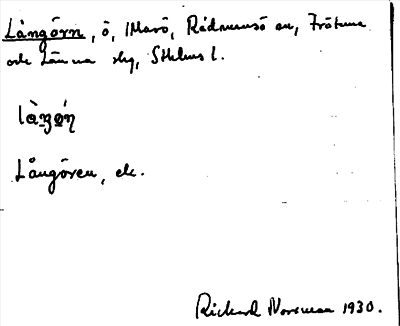 Långörn, ö, Marö, Rådmansö sn, Frötuna
och Länna slg, Sthlms l.
Långören, etc.
Rickard Norsman 1930.